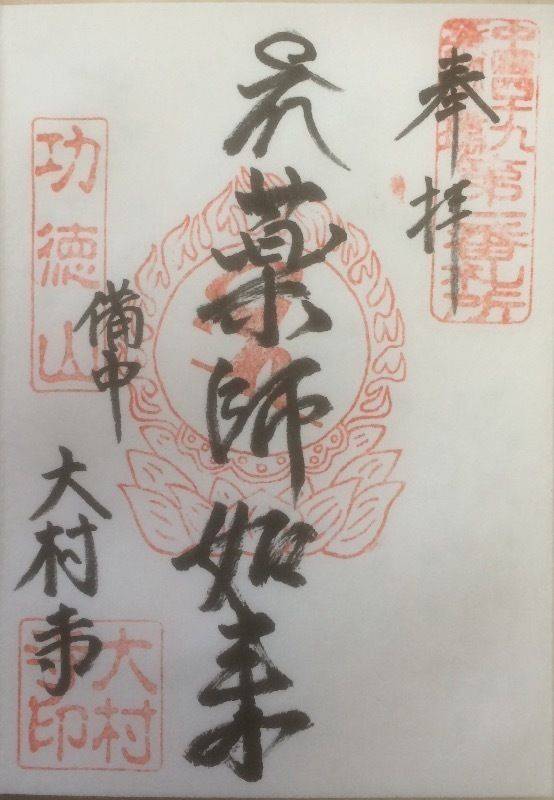 中国四十九
第一番札所
奉拝
薬師如来
功徳山
備中
大村寺
大村寺印